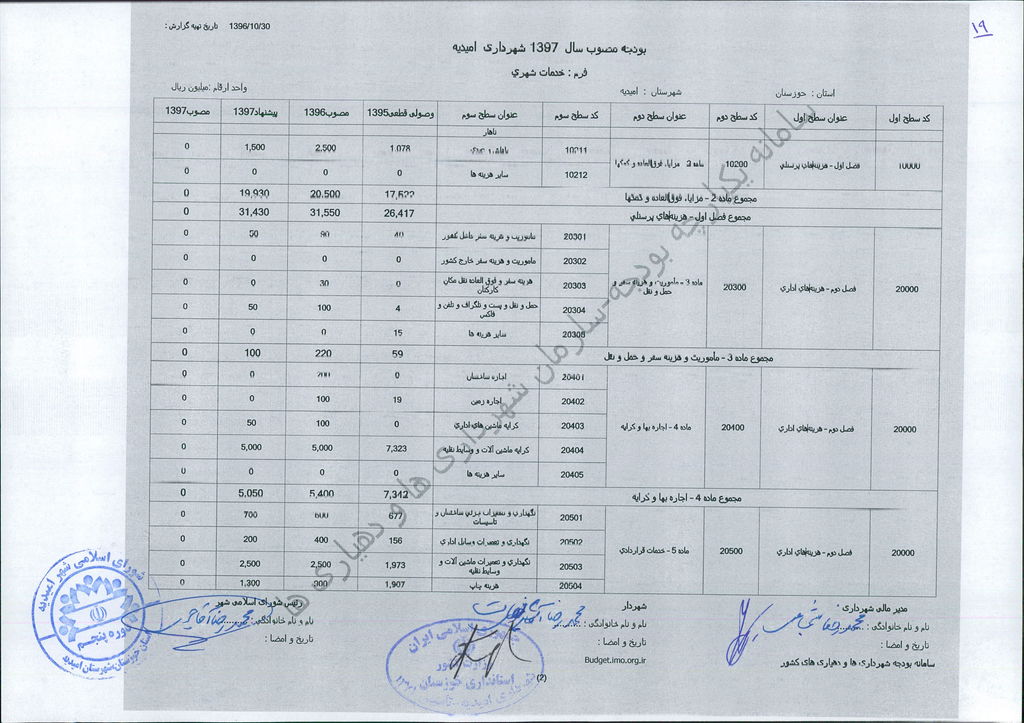 ۱۹
تاریخ تهیه گزارش : 1396/10/30
بودجه مصوب سال 1397 شهرداری امیدیه
فرم : خدمات شهري
استان : خوزستان شهرستان : امیدیه واحد ارقام :میلیون ریال
کد سطح اول عنوان سطح اول کد سطح دوم عنوان سطح دوم کد سطح سوم عنوان سطح سوم وصولی قطعی1395 مصوب1396 پیشنهاد1397 مصوب1397
ناهار
10000 فصل اول - هزینه‌های پرسنلي 10200 ماده 2 - مزایا، فوق‌العاده و کمکها
10211 1,078 2,500 1,500 0
10212 سایر هزینه ها 0 0 0 0
مجموع ماده 2 - مزایا، فوق‌العاده و کمکها 17,522 20,500 19,930 0
مجموع فصل اول - هزینه‌های پرسنلي 26,417 31,550 31,430 0
20000 فصل دوم - هزینه‌های اداري 20300 ماده 3 - مأموریت و هزینه سفر و حمل و نقل
20301 ماموریت و هزینه سفر داخل کشور 40 90 50 0
20302 ماموریت و هزینه سفر خارج کشور 0 0 0 0
20303 هزینه سفر و فوق العاده نقل مکان کارکنان 0 30 0 0
20304 حمل و نقل و پست و تلگراف و تلفن و فاکس 4 100 50 0
20306 سایر هزینه ها 15 0 0 0
مجموع ماده 3 - مأموریت و هزینه سفر و حمل و نقل 59 220 100 0
20000 فصل دوم - هزینه‌های اداري 20400 ماده 4 - اجاره بها و کرایه
20401 اجاره ساختمان 0 200 0 0
20402 اجاره زمین 19 100 0 0
20403 کرایه ماشین های اداري 0 100 50 0
20404 کرایه ماشین آلات و وسایط نقلیه 7,323 5,000 5,000 0
20405 سایر هزینه ها 0 0 0 0
مجموع ماده 4 - اجاره بها و کرایه 7,342 5,400 5,050 0
20000 فصل دوم - هزینه‌های اداري 20500 ماده 5 - خدمات قراردادي
20501 نگهداری و تعمیرات جزئی ساختمان و تاسیسات 677 600 700 0
20502 نگهداری و تعمیرات وسایل اداری 156 400 200 0
20503 نگهداری و تعمیرات ماشین آلات و وسایط نقلیه 1,973 2,500 2,500 0
20504 هزینه چاپ 1,907 900 1,300 0
مدیر مالی شهرداری : شهردار رئیس شورای اسلامی شهر
نام و نام خانوادگی : نام و نام خانوادگی : نام و نام خانوادگی :
تاریخ و امضا : تاریخ و امضا : تاریخ و امضا :
سامانه بودجه شهرداری ها و دهیاری های کشور Budget.imo.org.ir
(2)
سامانه یکپارچه بودجه-سازمان شهرداری ها و دهیاری ها
شورای اسلامی شهر امیدیه
دوره پنجم
استان خوزستان،شهرستان امیدیه
جمهوری اسلامی ایران
وزارت کشور
استانداری خوزستان